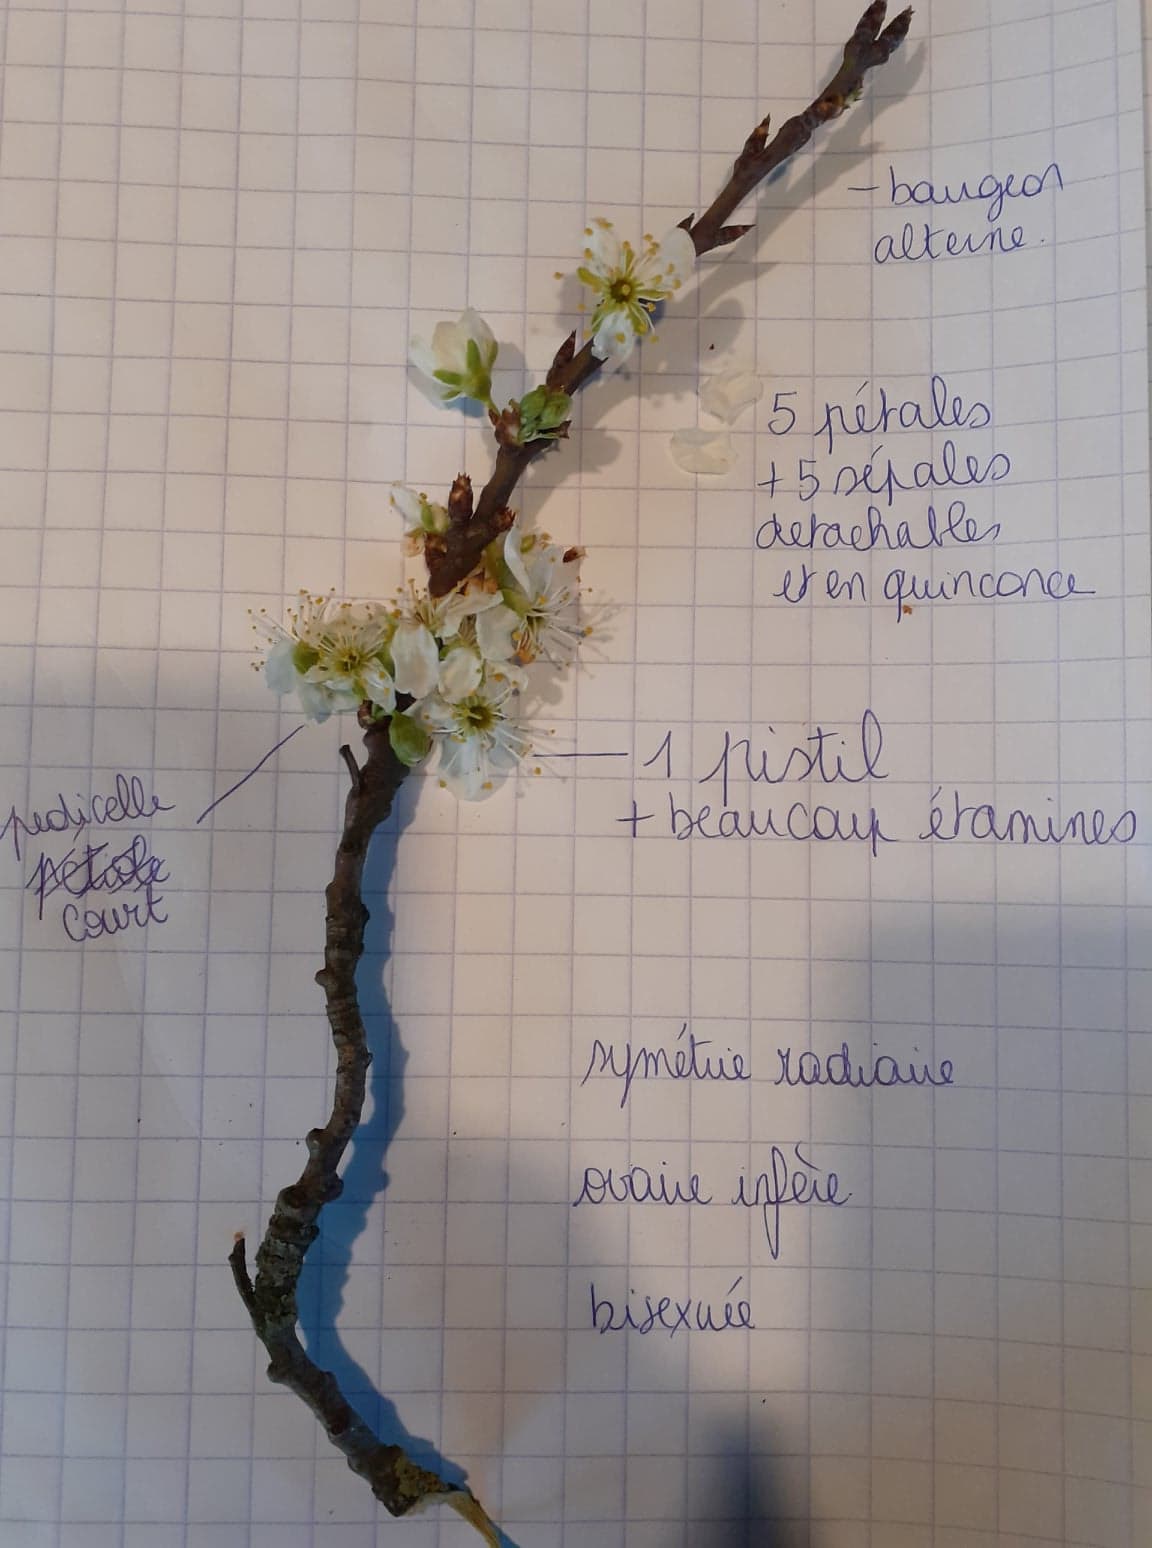 - bourgeon
alterne.
5 pétales
+ 5 sépales
detachables
et en quinconce
1 pistil
+ beaucoup étamines
pedicelle
pétiole
court
symétrie radiaire
ovaire infère
bisexuée